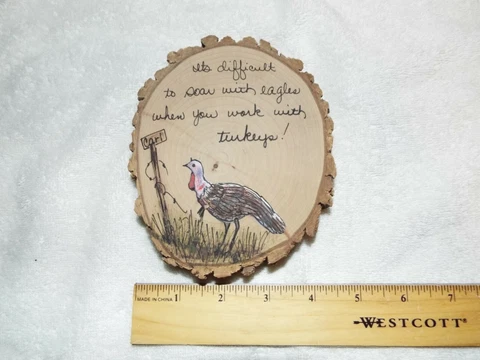 It's difficult
to soar with eagles
when you work with
turkeys!
Carl
MADE IN CHINA 1 2 3 4 5 6 7
WESTCOTT